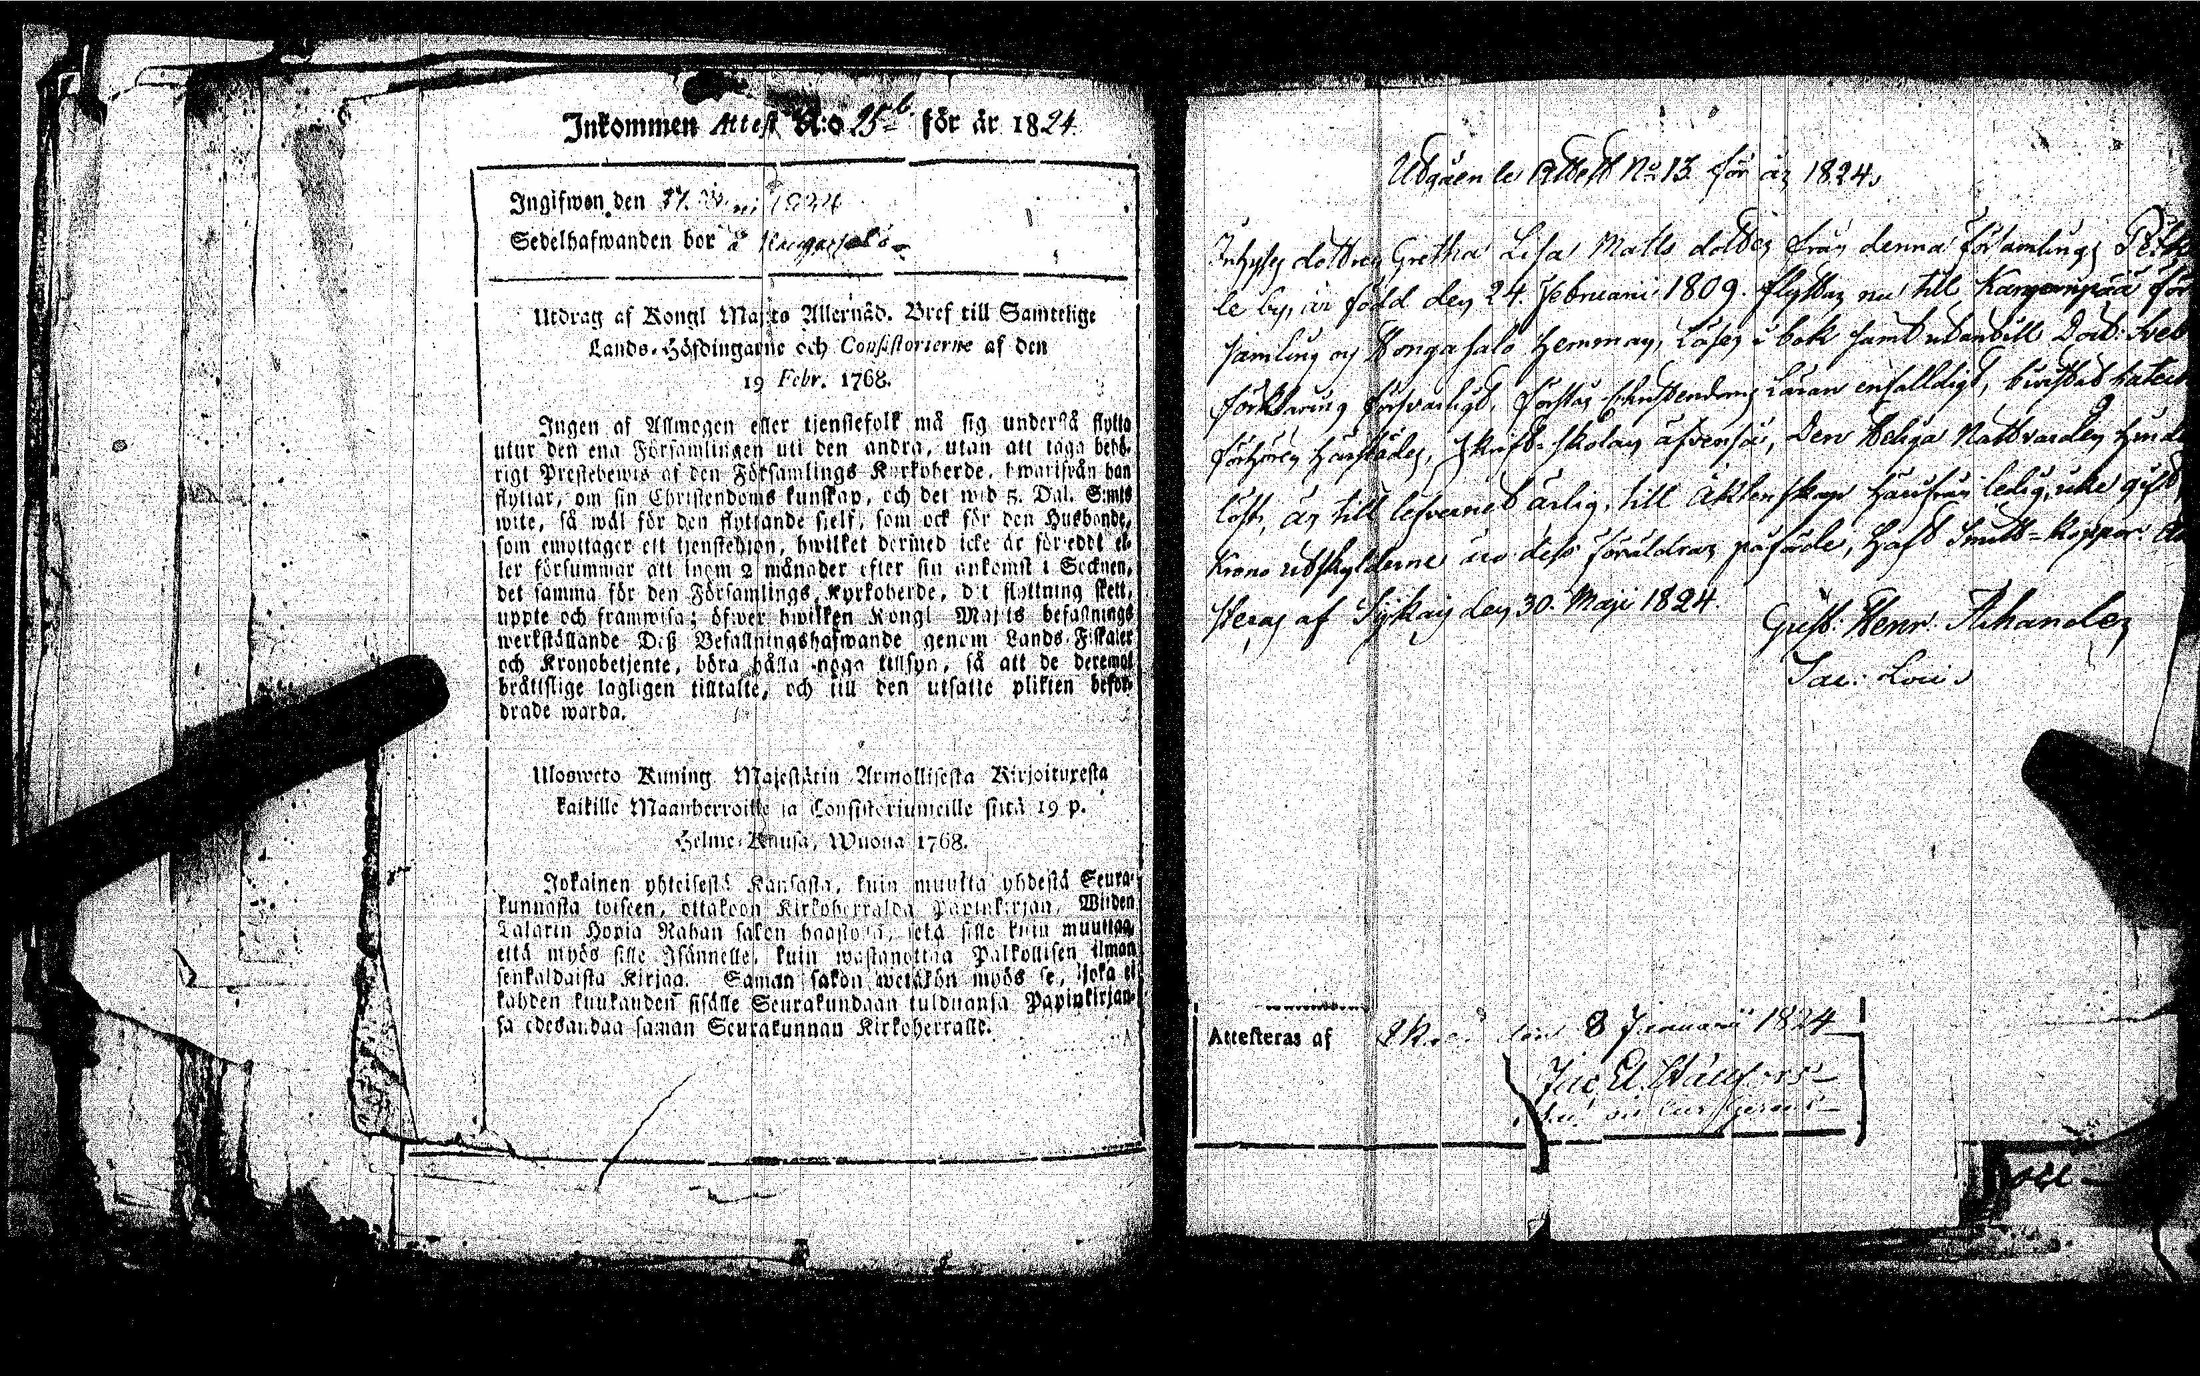 Inkommen Attest N:o 25 b. för år 1824
Ingifwen den 1824
Sedelhafwanden bor å
Utdrag af Kongl Maj:ts Allernåd. Bref till Samtelige
Lands-Höfdingarne och Consistorierne af den
19 Febr. 1768.
Ingen af Allmogen eller tjenstefolk må sig understå flytta
utur den ena Församlingen uti den andra, utan att taga behö-
rigt Prestebewis af den Församlings Kyrkoherde, hwarifrån han
flyttar, om sin Christendoms kunskap, och det wid 5. Dal. S:mts
wite, så wäl för den flyttande sjelf, som ock för den Husbonde,
som emottager ett tjenstehjon, hwilket dermed icke är föreddt el-
ler försummar att inom 2 månader efter sin ankomst i Socknen,
det samma för den Församlings Kyrkoherde, dit flyttning skett,
uppte och framwisa; öfwer hwilken Kongl Maj:ts befallnings
werkställande Deß Befallningshafwande genom Lands-Fiskaler
och Kronobetjente, böra hålla noga tillsyn, så att de deremot
bråttslige lagligen tilltalte, och till den utsatte plikten befor-
drade warda.
Ulosweto Kuning. Majestätin Armollisesta Kirjoituxesta
kaikille Maanherroille ja Consistoriumeille siitä 19 p.
Helme-Kuusa, Wuona 1768.
Jokainen yhteisestä Kansasta, kuin muutta yhdestä Seura-
kunnasta toiseen, ottakoon Kirkoherralda Papinkirjan, Wiiden
Talarin Hopia Rahan sakon haastolla, sekä sille kuin muuttaa,
että myös sille Isännelle, kuin wastanottaa Palkollisen ilman
senkaldaista Kirjaa. Saman sakon wetäkön myös se, joka ei
kahden kuukauden sisälle Seurakundaan tulduansa Papinkirjan-
sa edesandaa saman Seurakunnan Kirkoherralle.
Utgåen de Attest No 13 för år 1824.
Inhyses dottren Gretha Lisa Matts dotter från denna Församlings
le by, är född den 24. Februarii 1809. flyttar nu till Kangasnpää För
samling och Hongasalo Hemman, Läser i bok samt utantill Doct: Sveb
förklaring försvarligt, förstår Christendoms Läran enfalldigt, bivistat
förhören härstädes, Skrift-skolan äfvenså, Den Heliga Nattvarden
löst, är till lefvernet ärlig, till Äktenskap härifrån ledig, icke gift,
Krono utskylderne uti dess föräldrars påförde, Haft Smitt-koppor.
steras af Sykaig den 30. Maji 1824.
Gust: Henr:
Attesteras af den 8 Januarii 1824